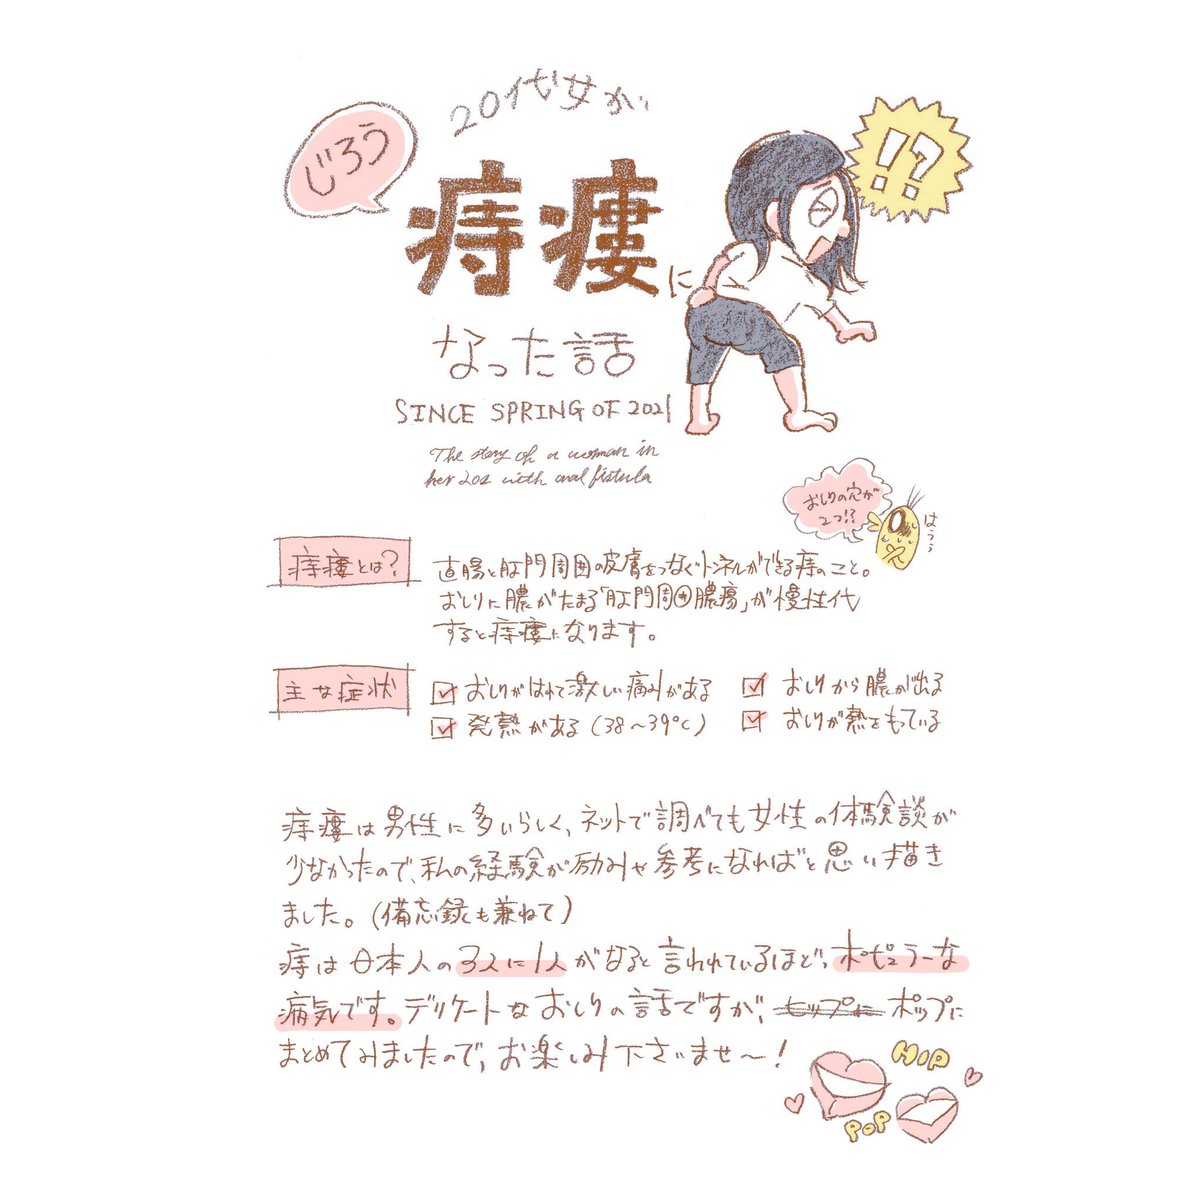 20代女が
じろう
痔瘻に
!?
なった話
SINCE SPRING OF 2021
The story of a woman in
her 20s with anal fistula
おしりの穴が
2つ!?
はうぅ
痔瘻とは?
直腸と肛門周囲の皮膚をつなぐトンネルができる痔のこと。
おしりに膿がたまる「肛門周囲膿瘍」が慢性化
すると痔瘻になります。
主な症状
おしりがはれて激しい痛みがある
おしりから膿が出る
発熱がある(38〜39℃)
おしりが熱をもっている
痔瘻は男性に多いらしく、ネットで調べても女性の体験談が
少なかったので、私の経験が励みや参考になればと思い描き
ました。(備忘録も兼ねて)
痔は日本人の3人に1人がなると言われているほど、ポピュラーな
病気です。デリケートなおしりの話ですが、ヒップにポップに
まとめてみましたので、お楽しみ下さいませ〜!
HIP
POP